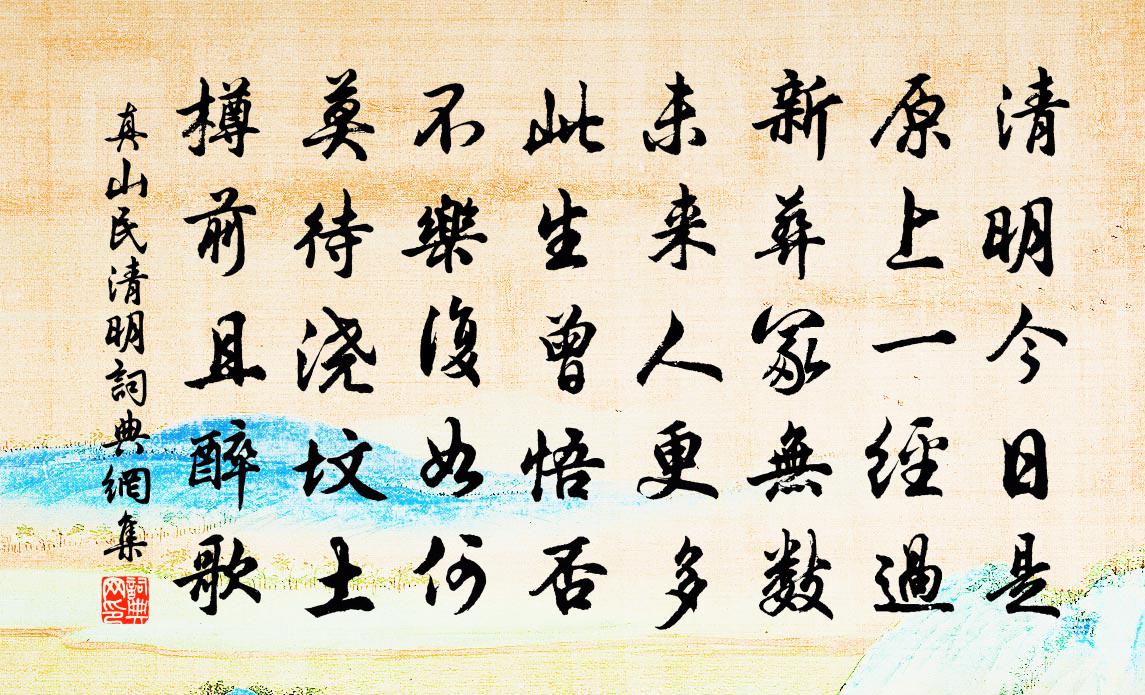 清明今日是
原上一經過
新葬冢無數
未来人更多
此生曾悟否
不樂復如何
莫待浇坟土
樽前且醉歌
真山民清明詞典網集
詞典网印